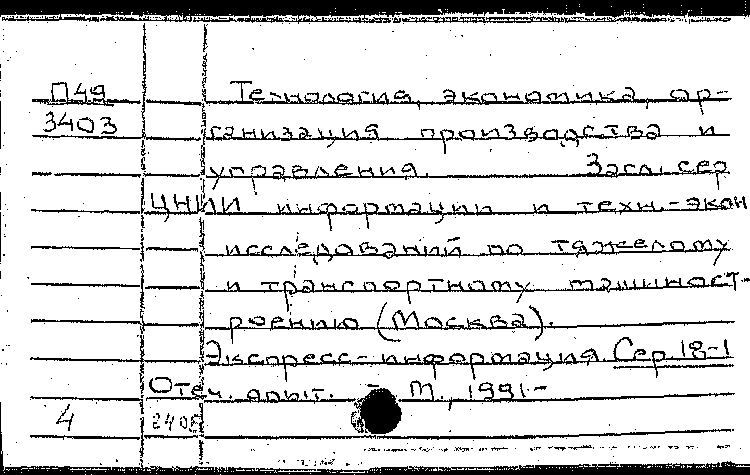 П49 Технология, экономика, ор-
3403 ганизация производства и
управления. Загл. сер
ЦНИИ информации и техн.-экон
исследований по тяжелому
и транспортному машиност-
роению (Москва).
Экспресс-информация. Сер 18-1
Отеч. опыт. - М., 1991-
4 2408